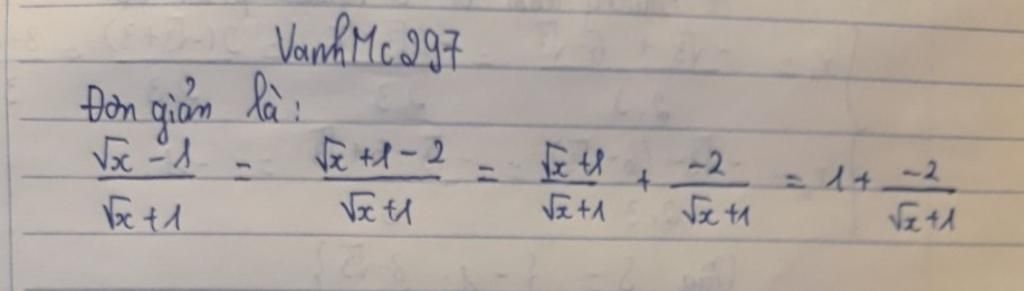 VanhMc297
Đơn giản là:
√x - 1 / √x + 1 = √x + 1 - 2 / √x + 1 = √x + 1 / √x + 1 + -2 / √x + 1 = 1 + -2 / √x + 1